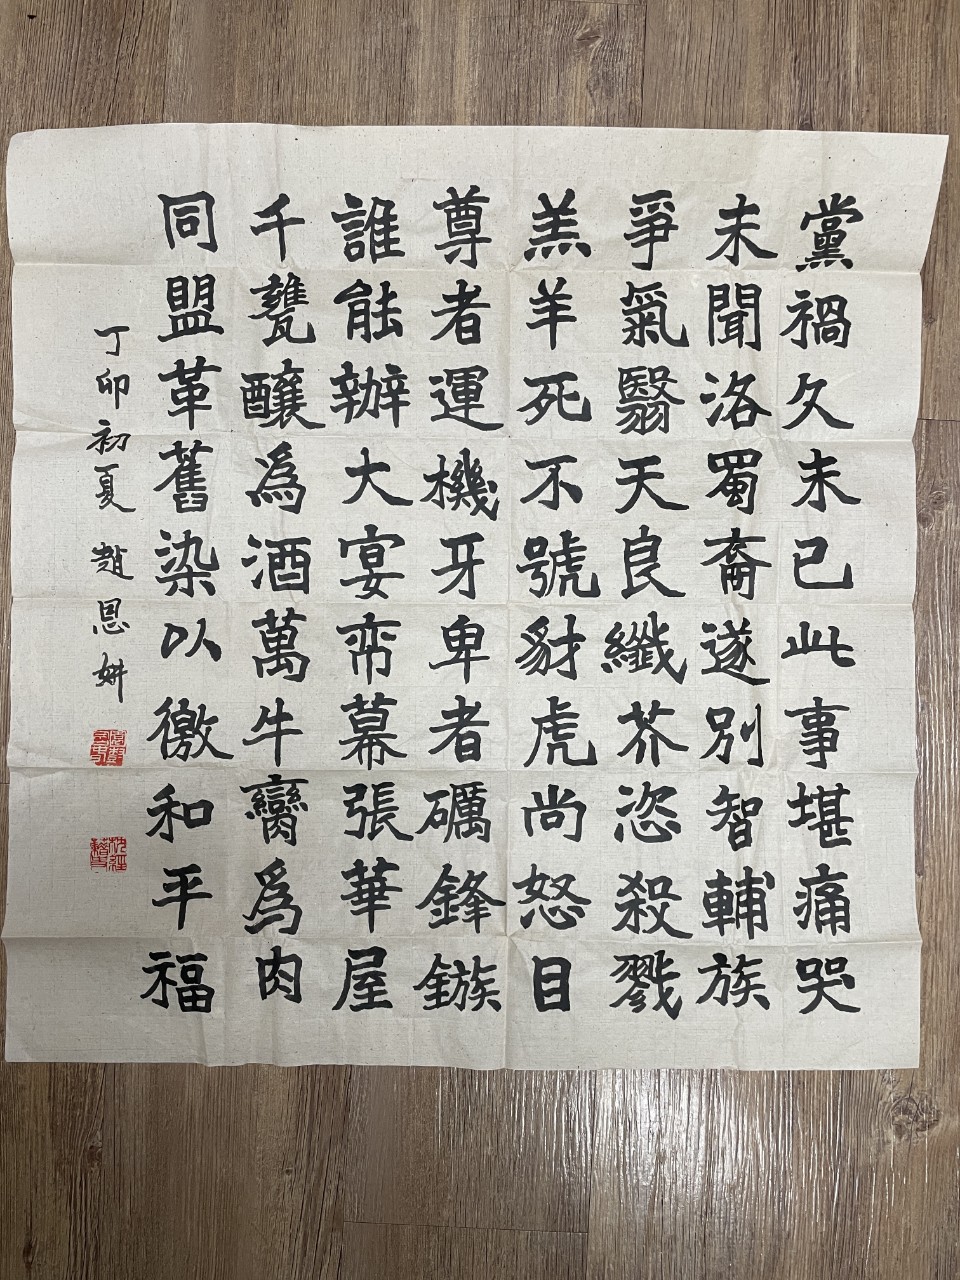 黨禍久未已此事堪痛哭
未聞洛蜀裔遂別智輔族
爭氣翳天良纖芥恣殺戮
羔羊死不號豺虎尚怒目
尊者運機牙卑者礪鋒鏃
誰能辦大宴帟幕張華屋
千甕釀為酒萬牛臠為肉
同盟革舊染以徼和平福
丁卯初夏 趙恩姘